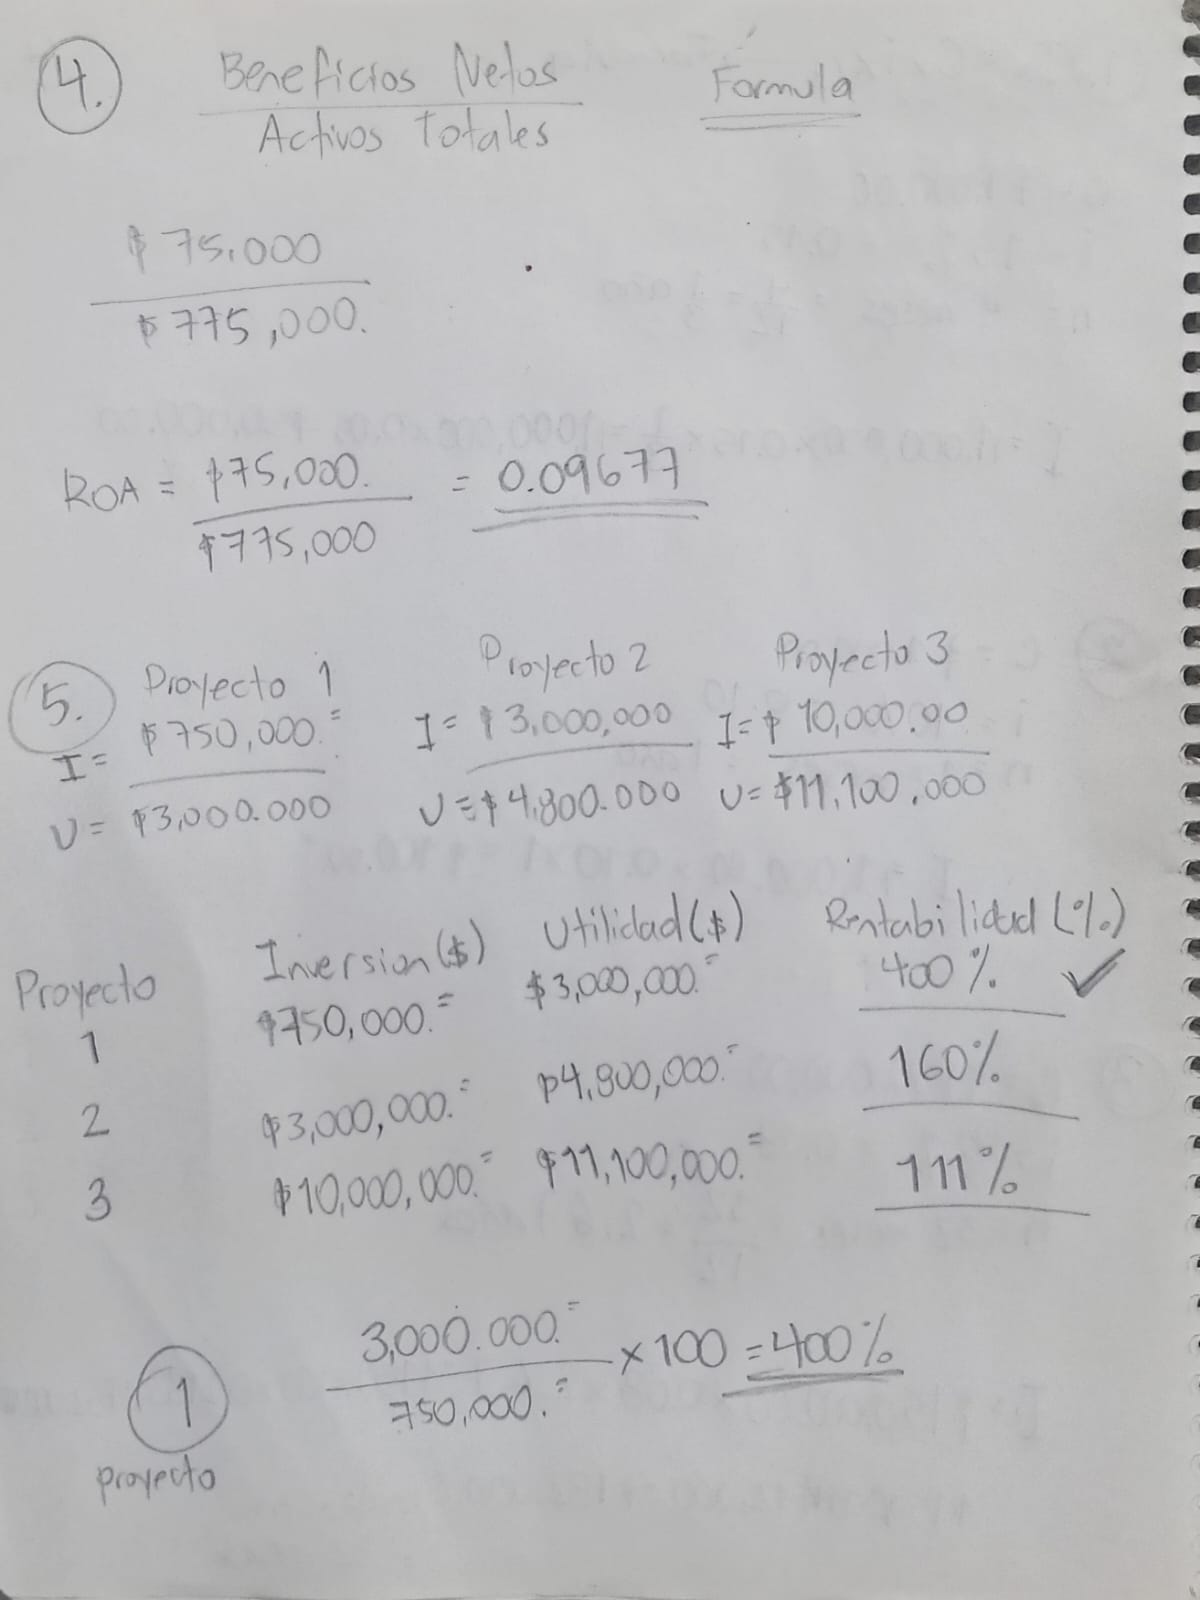 4. Beneficios Netos Formula
Activos Totales
$ 75.000
$ 775,000.
ROA = $75,000. = 0.09677
$775,000
5. Proyecto 1 Proyecto 2 Proyecto 3
I= $750,000.= I= $3,000,000 I=$ 10,000.00
U= $3,000.000 U=$4,800.000 U= $11,100,000
Proyecto Inversion($) Utilidad($) Rentabilidad (%)
1 $750,000.= $3,000,000.= 400% ✓
2 $3,000,000.= $4,800,000.= 160%
3 $10,000,000.= $11,100,000.= 111%
1 3,000.000.= x 100 = 400%
750,000.=
proyecto